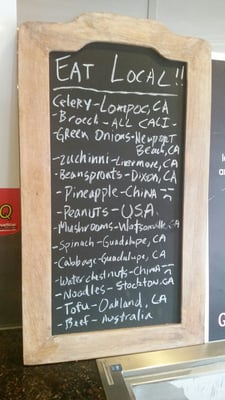 EAT LOCAL!!
Celery-Lompoc, CA
-Brocch-ALL CALI-
-Green Onions-Newport
Beach, CA
-Zuchinni-Livermore, CA
-Beansprouts-Dixon, CA
-Pineapple-China
-Peanuts-USA
-Mushrooms-Watsonville, CA
-Spinach-Guadalupe, CA
-Cabbage-Guadalupe, CA
-Water chestnuts-China
-Noodles-Stockton, CA
-Tofu-Oakland, CA
-Beef-Australia
Q